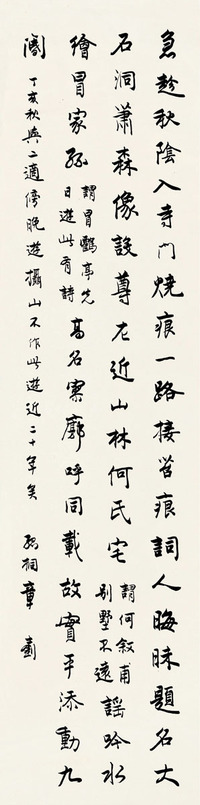 急趁秋陰入寺門燒痕一路接苔痕詞人晦昧題名大
石洞蕭森像設尊左近山林何氏宅
謂何敘甫
別墅不遠
謠吟水
繪冒家孫
謂冒鶴亭先
日遊此有詩
高名寥廓呼同載故實平添動九
閽
丁亥秋與二適傍晚遊攝山不作此遊近二十年矣 孤桐章士釗